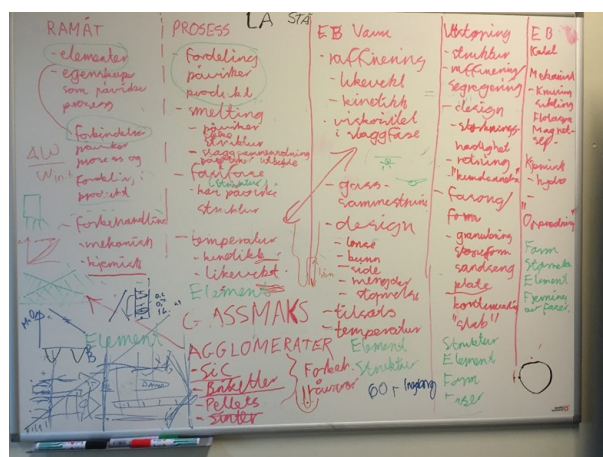 LA STÅ
RAMÅT
- elementer
- egenskaper
som påvirker
prosess
forbindelser
påvirker
prosess og
fordeling i
produkt
- forbehandling
- mekanisk
- kjemisk
Element
PROSESS
- fordeling
påvirker
produkt
- smelting
- påvirker
struktur
- fastfase
(struktur)
- kan påvirke
struktur
- temperatur
- kinetikk
- likevekt
Element
GASSMAKS
AGGLOMERATER
- SiC
- Briketter
- Pellets
- Sinter
Forbeh.
råvarer
EB Varm
- raffinering
- likevekt
- kinetikk
- viskositet
i slaggfase
- gass-
sammensetning
- design
- lanse
- bunn
- side
- mengder
- størrelse
- tilsats
- temperatur
Element
Struktur
60 t Ingolong
Utstøping
- struktur
- raffinering/
segregering
- design
- størknings-
hastighet
- retning
- farong/
form
- granulering
- støpeform
- sandseng
- plate
- kontinuerlig
"slab"
Struktur
Element
Form
EB
Kald
Mekanisk
- Knusing
- sikting
- Flotasjon
- Magnet-
sep.
Kjemisk
- hydro
"Oppredning"
Form
Størrelse
Element
Fjerning
av faser.